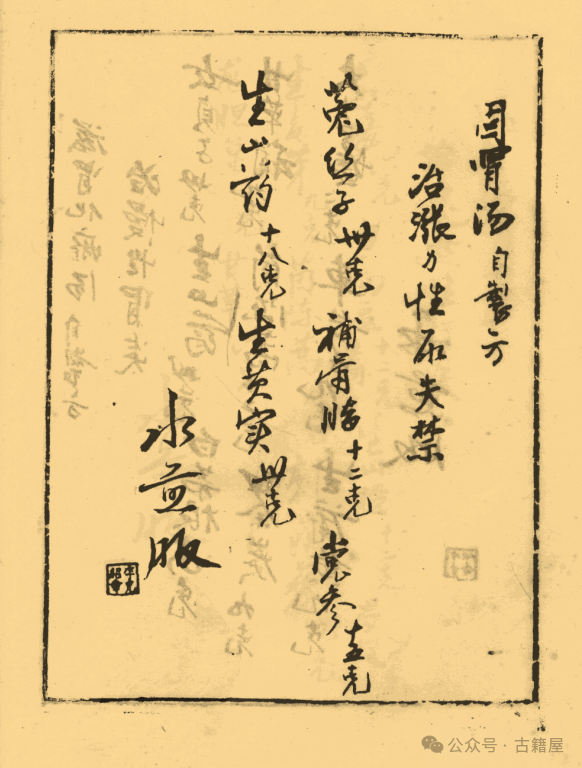 固腎汤 自製方
治漲力性尿失禁
菟丝子卅克 補骨脂十二克 党参十五克
生山药十八克 生芡实卅克
水煎服
公众号 · 古籍屋